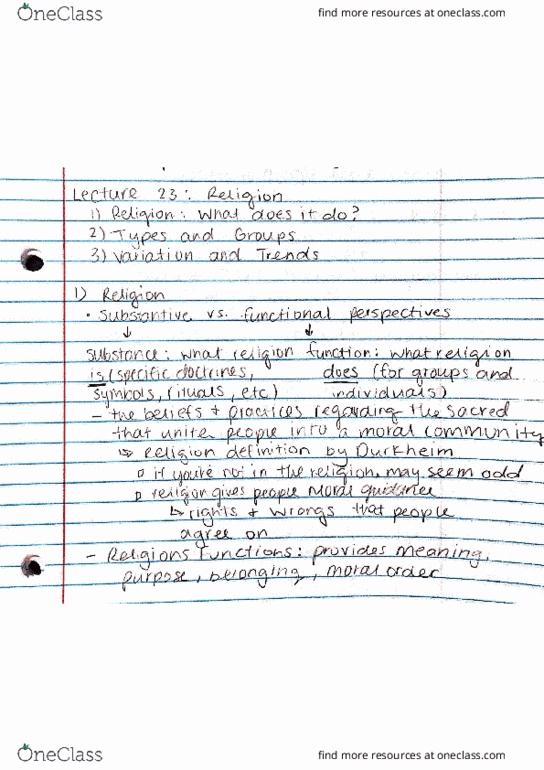 OneClass find more resources at oneclass.com
Lecture 23: Religion
1) Religion: What does it do?
2) Types and Groups
3) Variation and Trends
1) Religion
• Substantive vs. functional perspectives
↓ ↓
substance: what religion function: what religion
is (specific doctrines, does (for groups and
symbols, rituals, etc) individuals)
- the beliefs + practices regarding the sacred
that unite people into a moral community
↳ religion definition by Durkheim
▫ if you're not in the religion, may seem odd
▫ religion gives people moral guidance
↳ rights + wrongs that people
agree on
- Religions Functions: provides meaning,
purpose, belonging, moral order
OneClass find more resources at oneclass.com